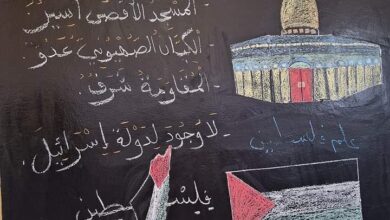 - المَسْجِدُ الأَقْصَى أَسِيرٌ
- الكِيَانُ الصَّهْيُونِيُّ عَدُوٌّ
- المُقَاوَمَةُ شَرَفٌ.
- لَا وُجُودَ لِدَوْلَةِ إِسْرَائِيلَ.
علم فلسطين
فِلِسْطِين